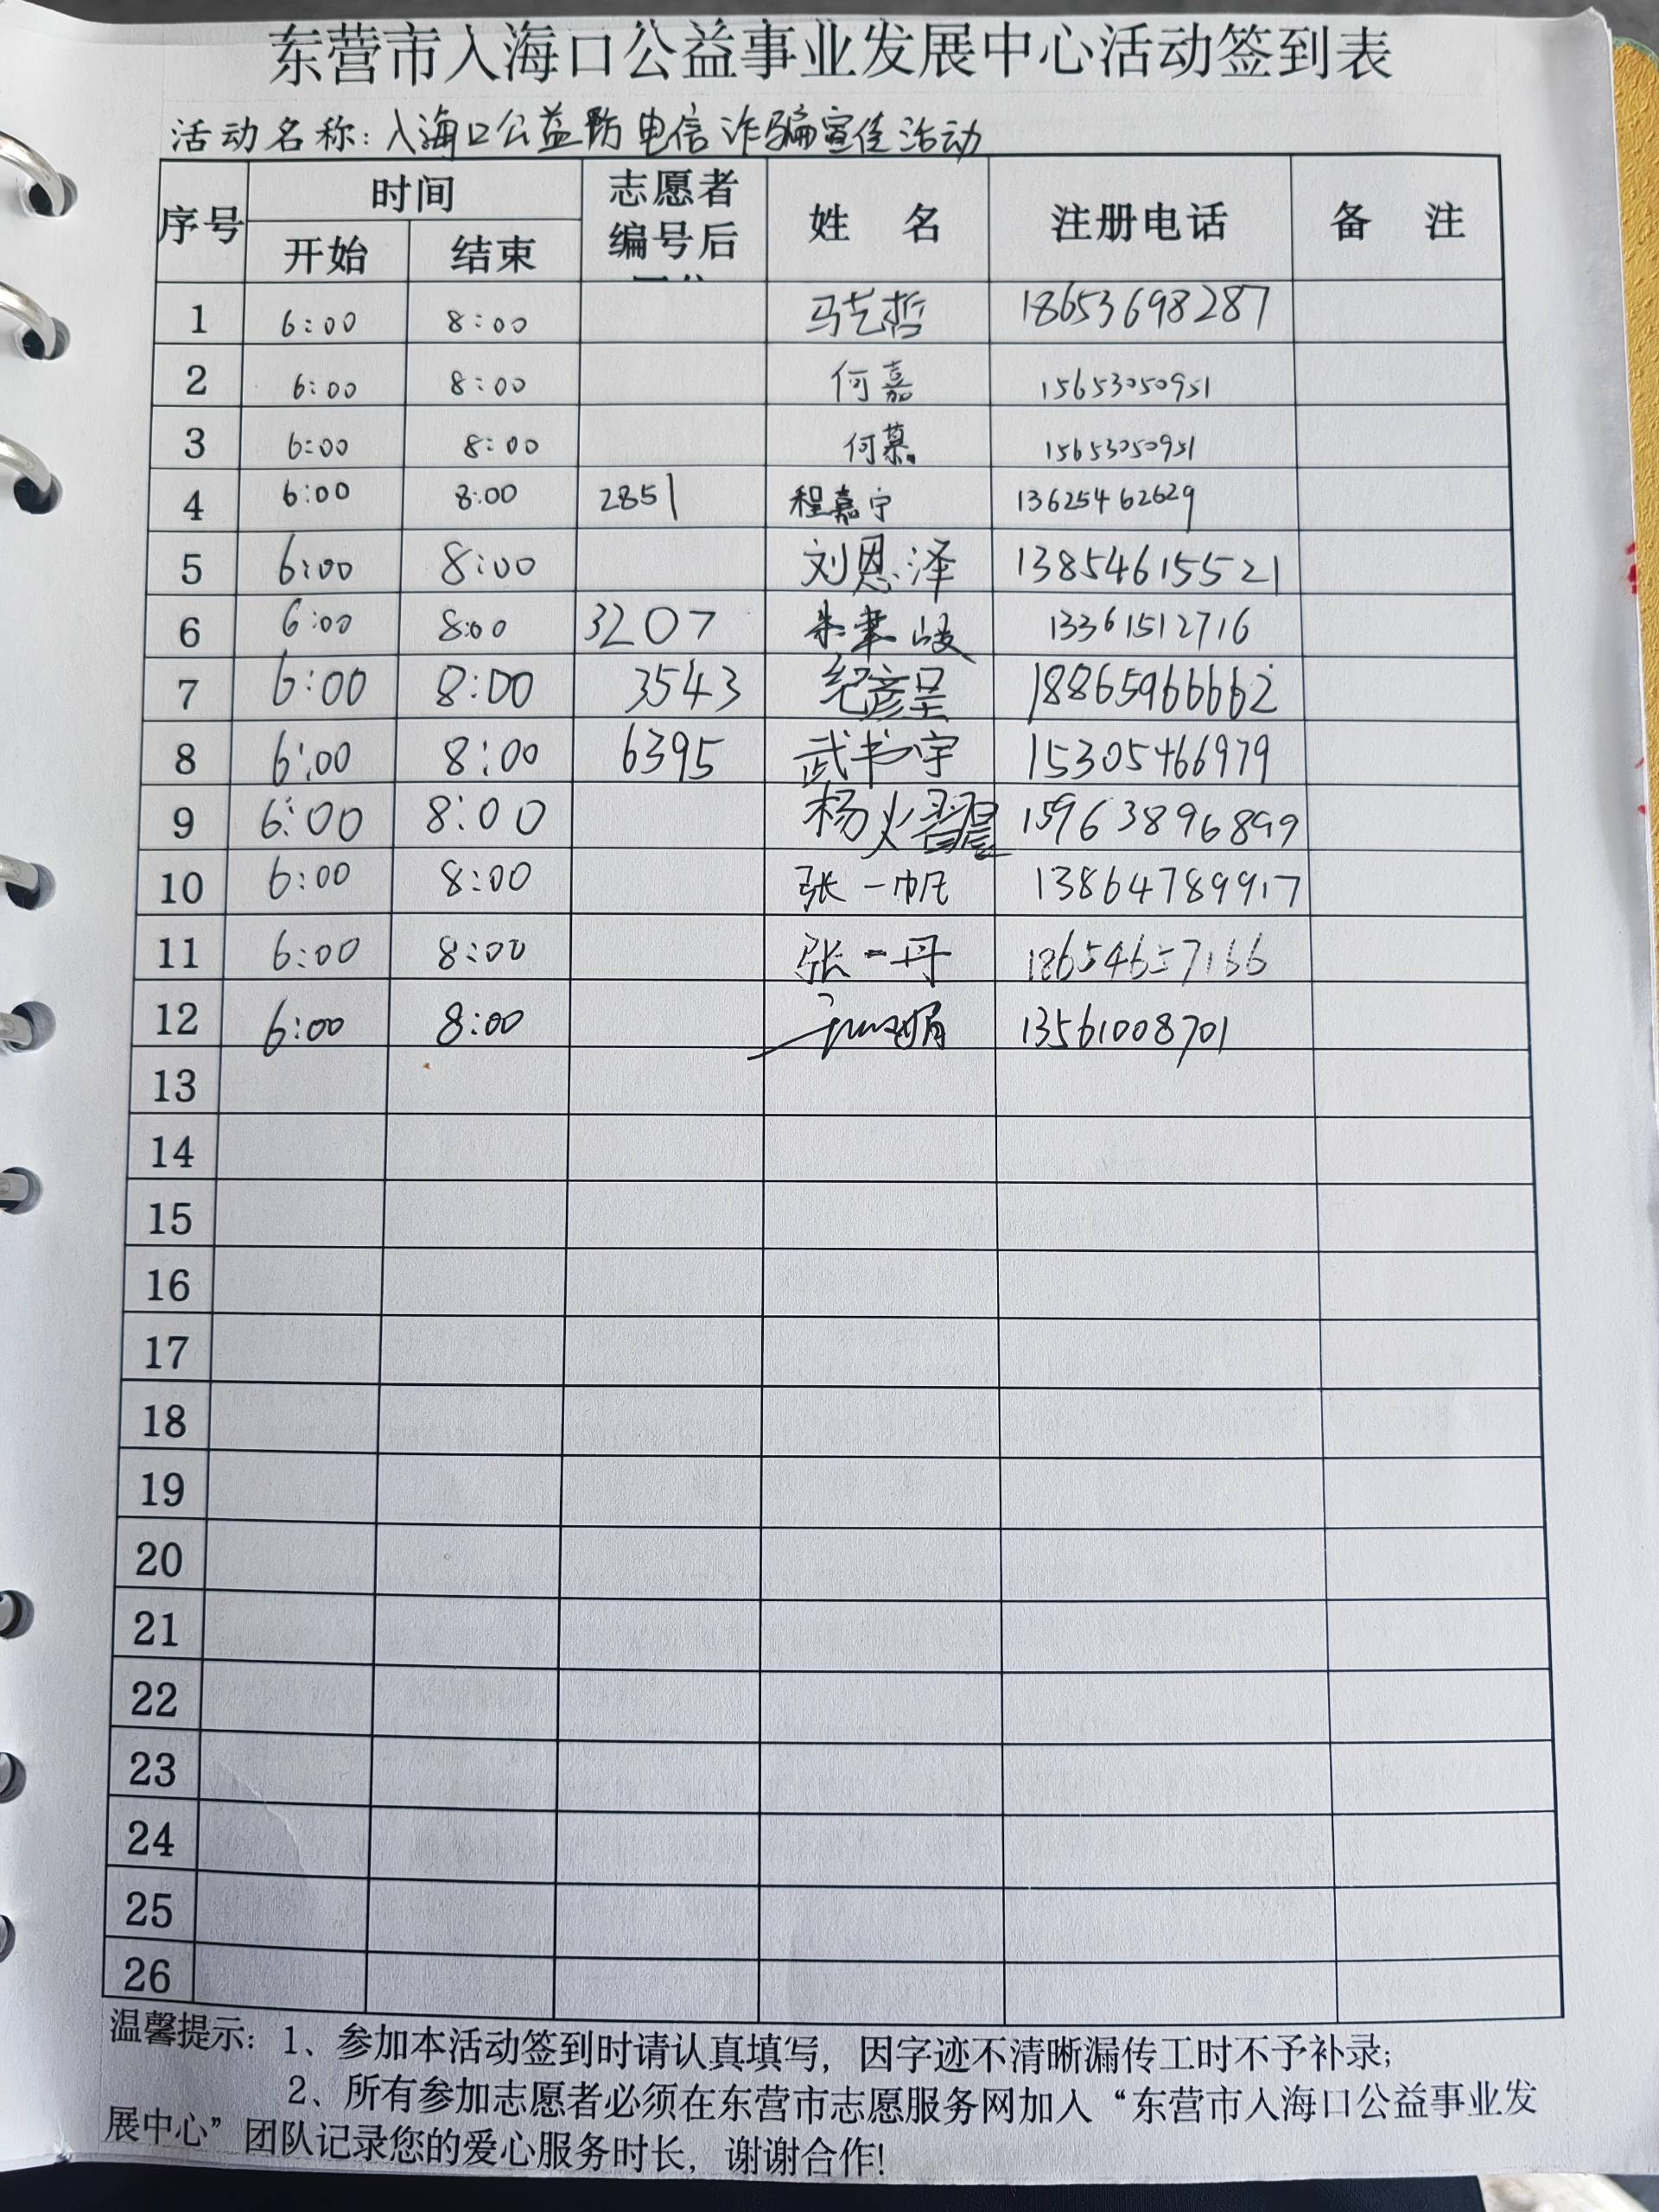 东营市入海口公益事业发展中心活动签到表
活动名称：入海口公益防电信诈骗宣传活动
序号 时间 志愿者编号后 姓 名 注册电话 备 注
开始 结束
1 6:00 8:00 马艺哲 18653698287
2 6:00 8:00 何嘉 15653050951
3 6:00 8:00 何慕 15653050951
4 6:00 8:00 2851 程嘉宁 13625462629
5 6:00 8:00 刘恩泽 13854615521
6 6:00 8:00 3207 朱聿峻 13361512716
7 6:00 8:00 3543 纪彦呈 18865966662
8 6:00 8:00 6395 武书宇 15305466979
9 6:00 8:00 杨熠晨 15963896899
10 6:00 8:00 张一帆 13864789917
11 6:00 8:00 张一丹 18654657166
12 6:00 8:00 13561008701
13
14
15
16
17
18
19
20
21
22
23
24
25
26
温馨提示：1、参加本活动签到时请认真填写，因字迹不清晰漏传工时不予补录；
2、所有参加志愿者必须在东营市志愿服务网加入“东营市入海口公益事业发
展中心”团队记录您的爱心服务时长，谢谢合作！